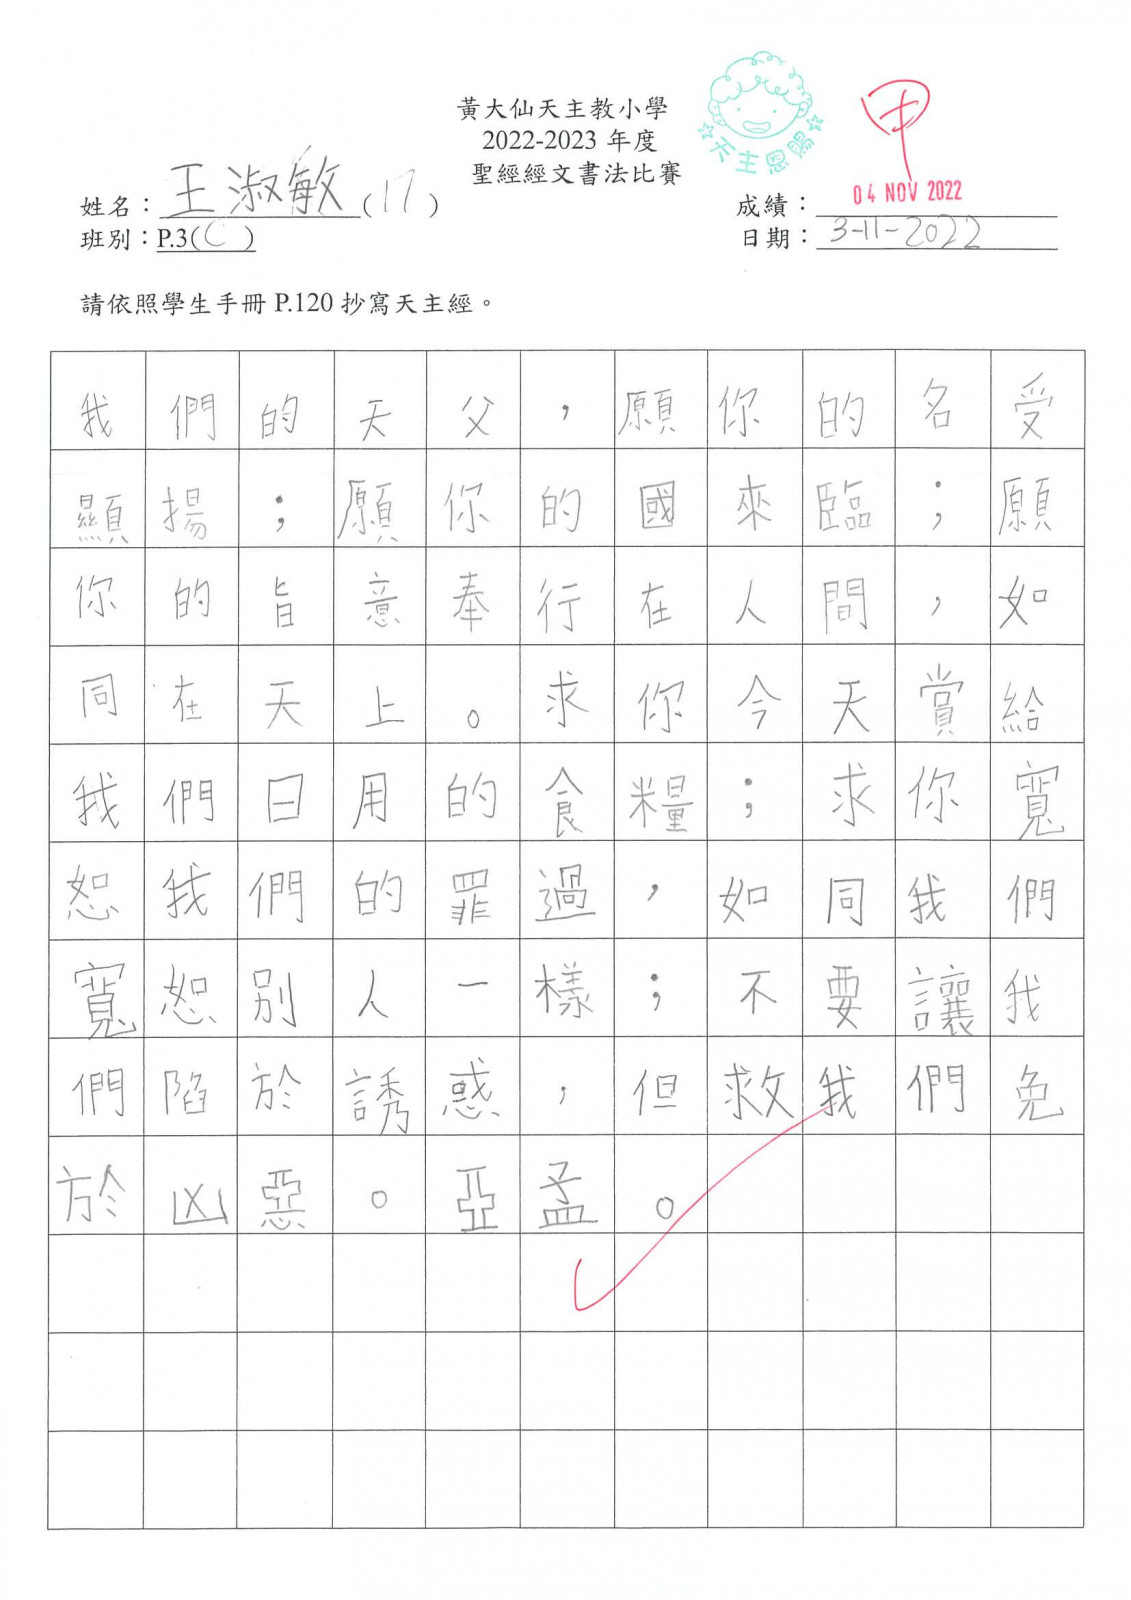 黃大仙天主教小學
2022-2023 年度
聖經經文書法比賽
天主恩賜
甲
04 NOV 2022
姓名：王淑敏(17)
成績：
班別：P.3(C)
日期：3-11-2022
請依照學生手冊 P.120 抄寫天主經。
我們的天父，願你的名受
顯揚；願你的國來臨；願
你的旨意奉行在人間，如
同在天上。求你今天賞給
我們日用的食糧；求你寬
恕我們的罪過，如同我們
寬恕別人一樣；不要讓我
們陷於誘惑，但救我們免
於凶惡。亞孟。